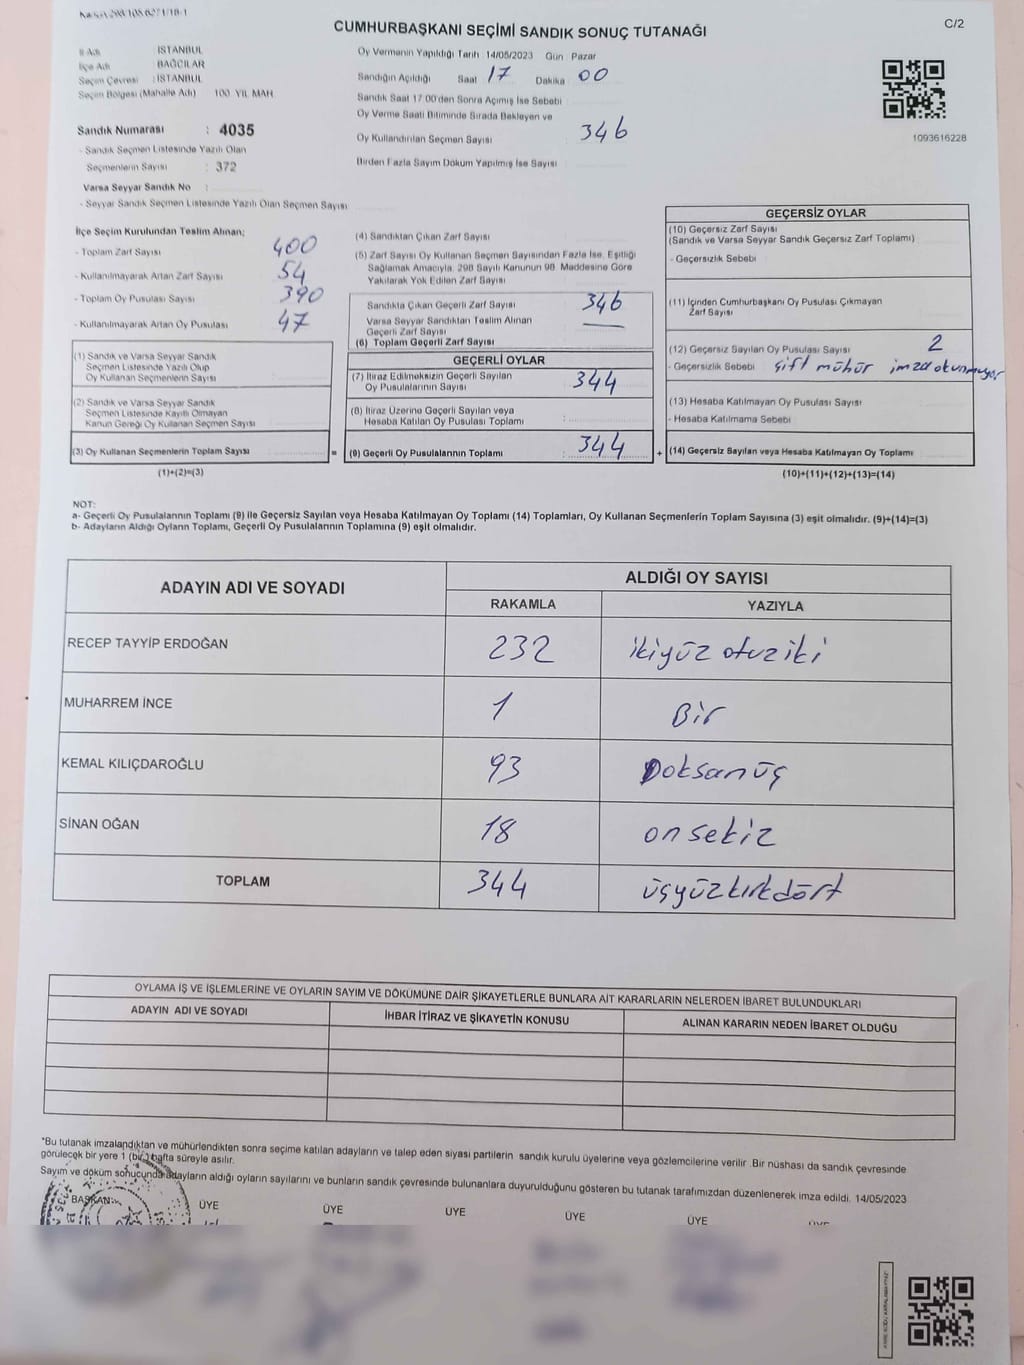 C/2
CUMHURBAŞKANI SEÇİMİ SANDIK SONUÇ TUTANAĞI
İl Adı : İSTANBUL
İlçe Adı : BAĞCILAR
Seçim Çevresi : İSTANBUL
Seçim Bölgesi (Mahalle Adı) 100. YIL MAH.
Sandık Numarası : 4035
- Sandık Seçmen Listesinde Yazılı Olan
Seçmenlerin Sayısı : 372
Varsa Seyyar Sandık No :
- Seyyar Sandık Seçmen Listesinde Yazılı Olan Seçmen Sayısı
Oy Vermenin Yapıldığı Tarih 14/05/2023 Gün Pazar
Sandığın Açıldığı Saat 17 Dakika 00
Sandık Saat 17:00'den Sonra Açımış İse Sebebi
Oy Verme Saati Bitiminde Sırada Bekleyen ve
Oy Kullandırılan Seçmen Sayısı 346
Birden Fazla Sayım Döküm Yapılmış İse Sayısı
1093616228
İlçe Seçim Kurulundan Teslim Alınan;
- Toplam Zarf Sayısı 400
- Kullanılmayarak Artan Zarf Sayısı 54
- Toplam Oy Pusulası Sayısı 390
- Kullanılmayarak Artan Oy Pusulası 47
(1) Sandık ve Varsa Seyyar Sandık
Seçmen Listesinde Yazılı Olup
Oy Kullanan Seçmenlerin Sayısı
(2) Sandık ve Varsa Seyyar Sandık
Seçmen Listesinde Kayıtlı Olmayan
Kanun Gereği Oy Kullanan Seçmen Sayısı
(3) Oy Kullanan Seçmenlerin Toplam Sayısı =
(1)+(2)=(3)
(4) Sandıktan Çıkan Zarf Sayısı
(5) Zarf Sayısı Oy Kullanan Seçmen Sayısından Fazla İse, Eşitliği
Sağlamak Amacıyla, 298 Sayılı Kanunun 98. Maddesine Göre
Yakılarak Yok Edilen Zarf Sayısı
Sandıkta Çıkan Geçerli Zarf Sayısı 346
Varsa Seyyar Sandıktan Teslim Alınan
Geçerli Zarf Sayısı
(6) Toplam Geçerli Zarf Sayısı
GEÇERLİ OYLAR
(7) İtiraz Edilmeksizin Geçerli Sayılan
Oy Pusulalarının Sayısı 344
(8) İtiraz Üzerine Geçerli Sayılan veya
Hesaba Katılan Oy Pusulası Toplamı :
(9) Geçerli Oy Pusulalarının Toplamı : 344 +
GEÇERSİZ OYLAR
(10) Geçersiz Zarf Sayısı
(Sandık ve Varsa Seyyar Sandık Geçersiz Zarf Toplamı)
- Geçersizlik Sebebi
(11) İçinden Cumhurbaşkanı Oy Pusulası Çıkmayan
Zarf Sayısı
(12) Geçersiz Sayılan Oy Pusulası Sayısı 2
- Geçersizlik Sebebi çift mühür imza okunmuyor
(13) Hesaba Katılmayan Oy Pusulası Sayısı
- Hesaba Katılmama Sebebi
(14) Geçersiz Sayılan veya Hesaba Katılmayan Oy Toplamı
(10)+(11)+(12)+(13)=(14)
NOT:
a- Geçerli Oy Pusulalarının Toplamı (9) ile Geçersiz Sayılan veya Hesaba Katılmayan Oy Toplamı (14) Toplamları, Oy Kullanan Seçmenlerin Toplam Sayısına (3) eşit olmalıdır. (9)+(14)=(3)
b- Adayların Aldığı Oyların Toplamı, Geçerli Oy Pusulalarının Toplamına (9) eşit olmalıdır.
ADAYIN ADI VE SOYADI ALDIĞI OY SAYISI
RAKAMLA YAZIYLA
RECEP TAYYİP ERDOĞAN 232 ikiyüz otuziki
MUHARREM İNCE 1 Bir
KEMAL KILIÇDAROĞLU 93 Doksanüç
SİNAN OĞAN 18 onsekiz
TOPLAM 344 üçyüzkırkdört
OYLAMA İŞ VE İŞLEMLERİNE VE OYLARIN SAYIM VE DÖKÜMÜNE DAİR ŞİKAYETLERLE BUNLARA AİT KARARLARIN NELERDEN İBARET BULUNDUKLARI
ADAYIN ADI VE SOYADI İHBAR İTİRAZ VE ŞİKAYETİN KONUSU ALINAN KARARIN NEDEN İBARET OLDUĞU
*Bu tutanak imzalandıktan ve mühürlendikten sonra seçime katılan adayların ve talep eden siyasi partilerin sandık kurulu üyelerine veya gözlemcilerine verilir .Bir nüshası da sandık çevresinde
görülecek bir yere 1 (bir) hafta süreyle asılır.
Sayım ve döküm sonucunda adayların aldığı oyların sayılarını ve bunların sandık çevresinde bulunanlara duyurulduğunu gösteren bu tutanak tarafımızdan düzenlenerek imza edildi. 14/05/2023
BAŞKAN ÜYE ÜYE ÜYE ÜYE ÜYE ÜYE